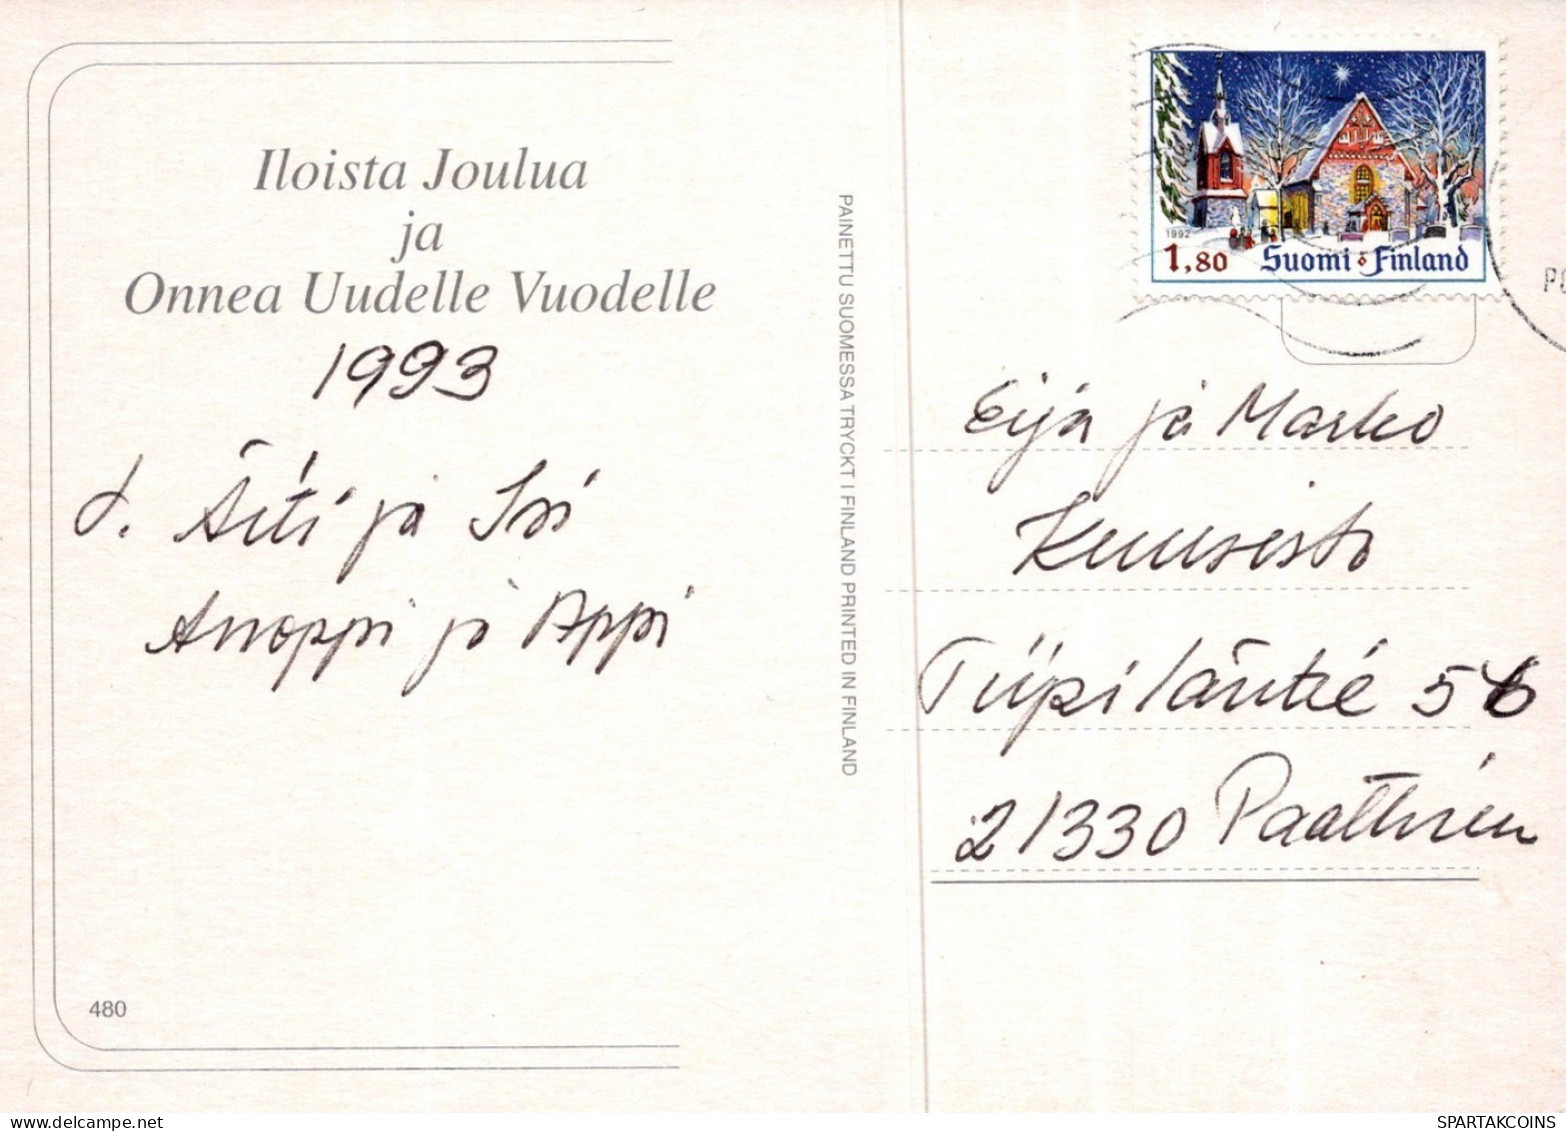 Iloista Joulua
ja
Onnea Uudelle Vuodelle
1993
t. Äiti ja Isi
Anoppi ja Appi
480
PAINETTU SUOMESSA TRYCKT I FINLAND PRINTED IN FINLAND
1992
1,80 Suomi Finland
PO
Eija ja Marko
Kuusisto
Tiipiläntie 56
21330 Paattinen
SPARTAKCOINS